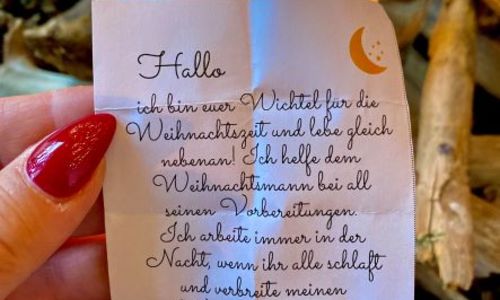 Hallo
ich bin euer Wichtel für die
Weihnachtszeit und lebe gleich
nebenan! Ich helfe dem
Weihnachtsmann bei all
seinen Vorbereitungen.
Ich arbeite immer in der
Nacht, wenn ihr alle schlaft
und verbreite meinen